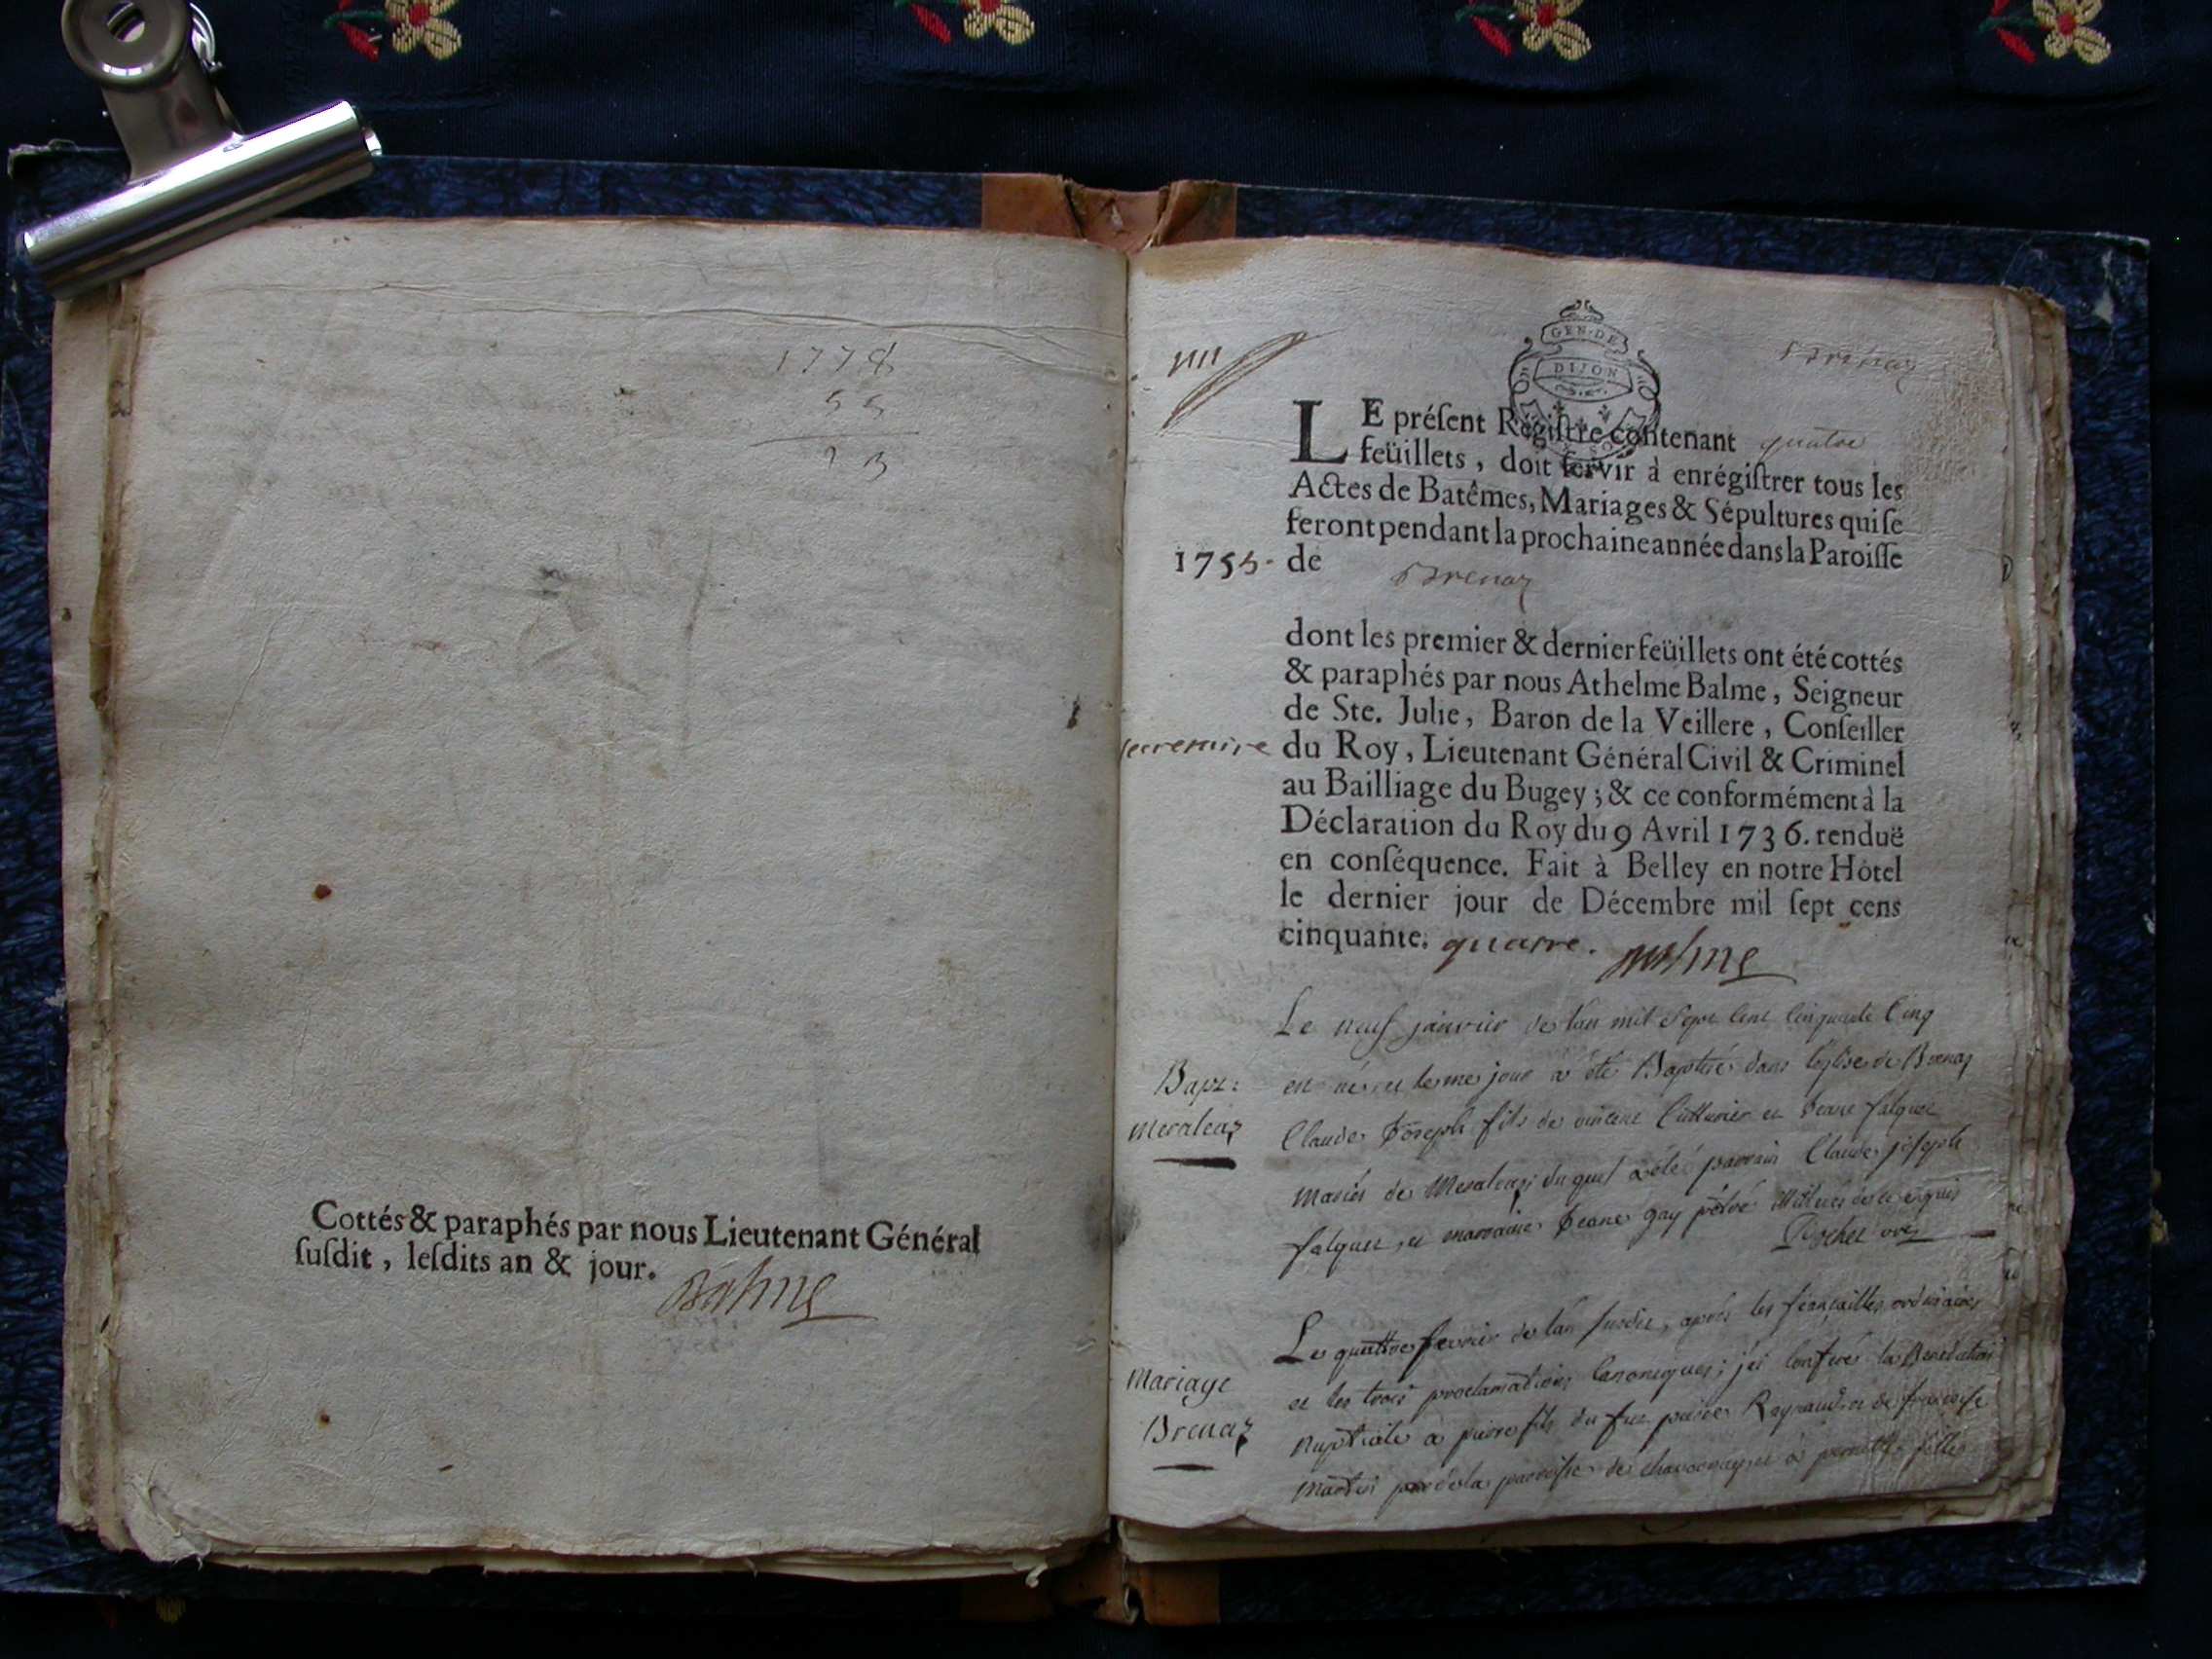 1778
55
23
Cottés & paraphés par nous Lieutenant Général
ſuſdit, leſdits an & jour.
Balme
GEN·DE
DIJON
Brenaz
LE préſent Regiſtre contenant quatre
feüillets, doit ſervir à enrégiſtrer tous les
Actes de Batêmes, Mariages & Sépultures qui ſe
feront pendant la prochaine année dans la Paroiſſe
1755. de Brenaz
dont les premier & dernier feüillets ont été cottés
& paraphés par nous Athelme Balme, Seigneur
de Ste. Julie, Baron de la Veillere, Conſeiller
secretaire du Roy, Lieutenant Général Civil & Criminel
au Bailliage du Bugey; & ce conformément à la
Déclaration du Roy du 9 Avril 1736. renduë
en conſéquence. Fait à Belley en notre Hôtel
le dernier jour de Décembre mil ſept cens
cinquante. quatre. Balme
Le neuf janvier de lan mil Sept Cent Cinquante Cinq
Bapt:
est né et le me jour a été Baptisé dans léglise de Brenaz
Meraleaz
Claude Joseph fils de vincent Cutturier et Jeane falquet
Mariés de Meraleaz; duquel a été parrain Claude joseph
falquet, et marraine Jeane gay
Le quattre fevrier de lan susdit, après les fiançailles ordinaires
Mariage
et les trois proclamations Canoniques; jai Conferé la Benediction
Brenaz
Nuptiale a pierre fils du fut pierre Raynaud et de francoise
Martin de la parroisse de et a pernette fille